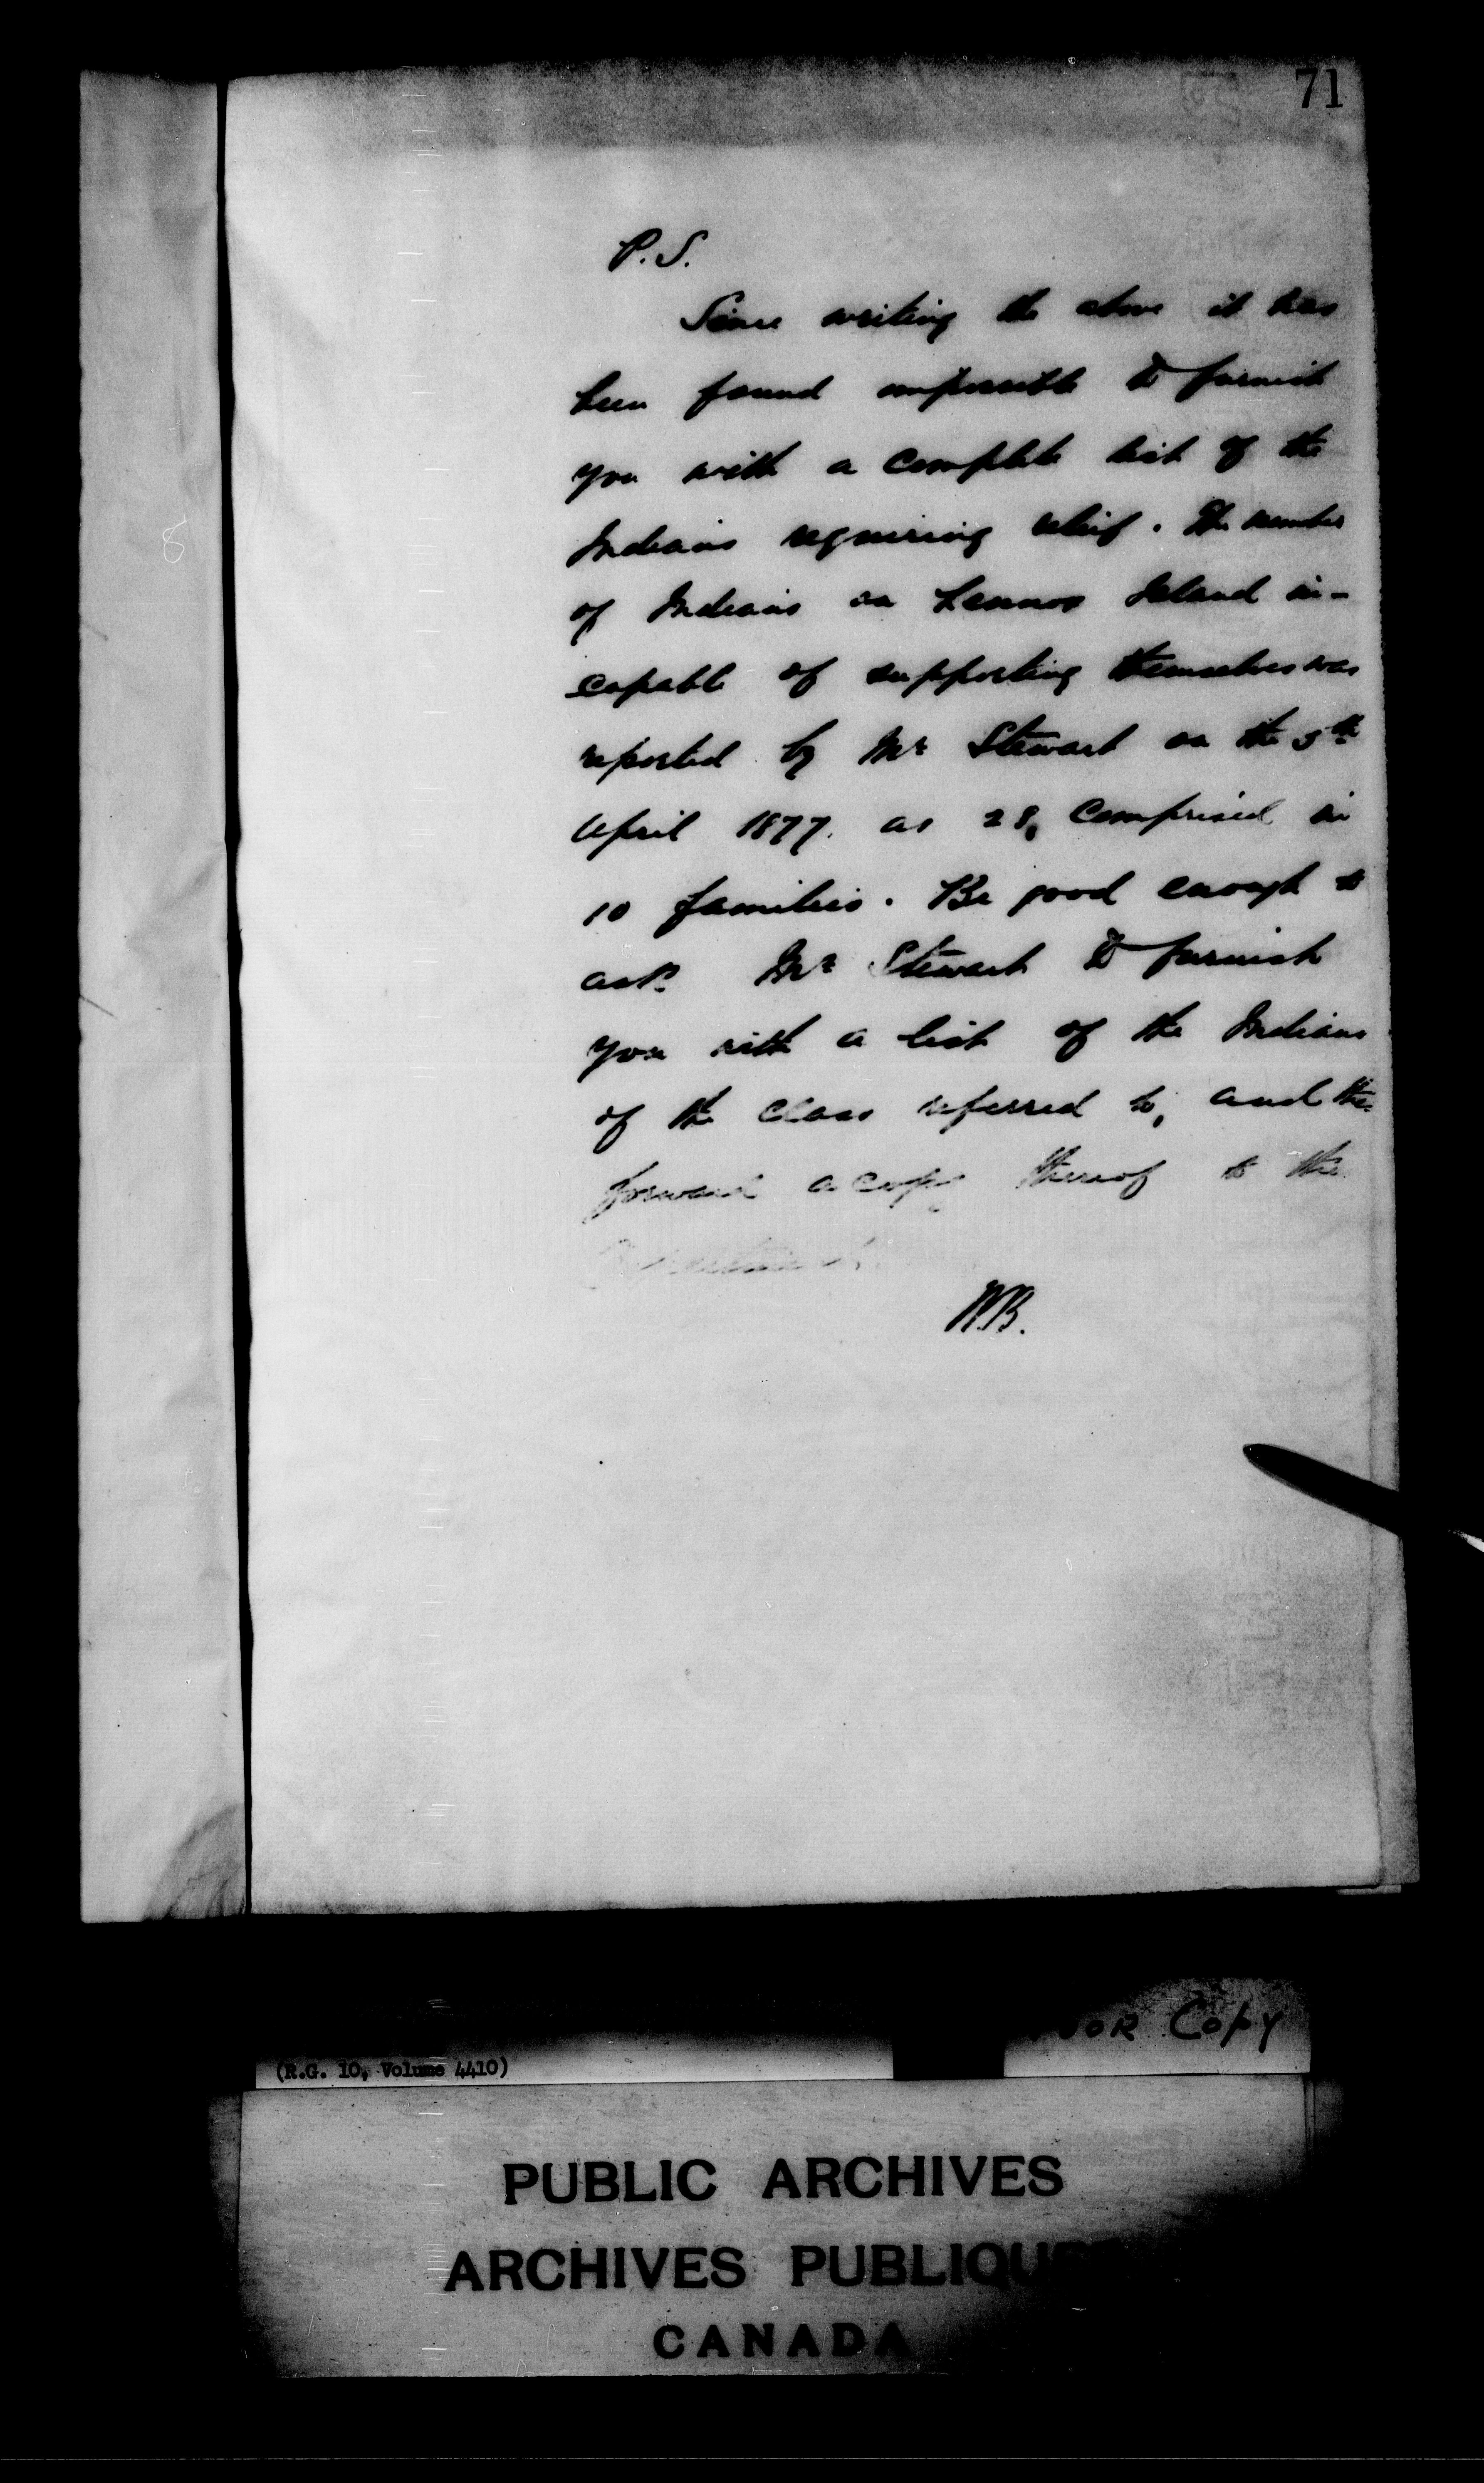 71
P.S.
Since writing the above it has
been found impossible to furnish
you with a complete list of the
Indians requiring relief. The number
of Indians on Lennox Island in-
capable of supporting themselves was
reported by Mr Stewart on the 5th
April 1877. as 28, comprised in
10 families. Be good enough to
ask Mr Stewart to furnish
you with a list of the Indians
of the class referred to, and
forward a copy thereof to the
Department.
Copy
(R.G. 10, Volume 4410)
PUBLIC ARCHIVES
ARCHIVES
CANADA